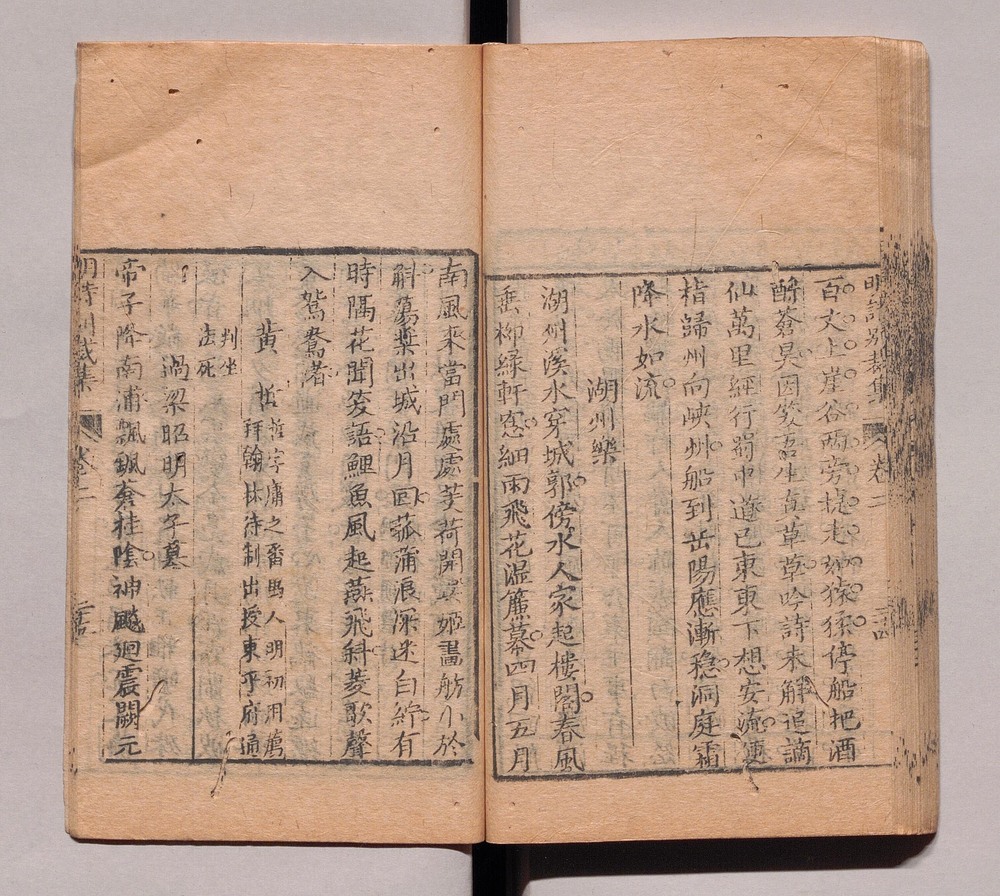 明詩別裁集 卷二
百丈上崖谷兩旁捷走如猿猱停船把酒
酹蒼昊因笑吾生真草草吟詩未解追謫
仙萬里經行蜀中道巴東東下想安流便
指歸州向峽州船到岳陽應漸穩洞庭霜
降水如流
湖州樂
湖州溪水穿城郭傍水人家起樓閣春風
垂柳緑軒窓細雨飛花濕簾幕四月五月
南風來當門處處芰荷開吳姬畫舫小於
斛蕩槳出城沿月回菰蒲浪深迷白紵有
時隔花聞笑語鯉魚風起燕飛斜菱歌聲
入鴛鴦渚
黃哲 哲字庸之番禺人明初用薦
拜翰林待制出授東平府通
判坐
法死
過梁昭明太子墓
帝子降南浦颯颯蒼桂陰神飈廻震闕元